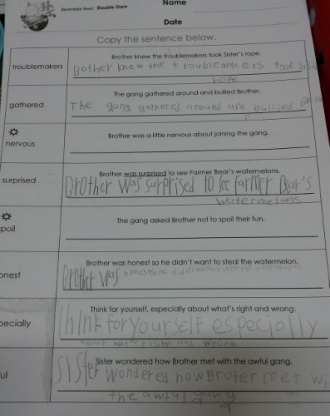 Name
Berenstain Bears Double Dare
Date
Copy the sentence below.
troublemakers
Brother knew the troublemakers took Sister's rope.
Bother knew the troublemakers took
rope
gathered
The gang gathered around and bullied Brother.
The gang gathered around and bullied
nervous
Brother was a little nervous about joining the gang.
surprised
Brother was surprised to see Farmer Bear's watermelons.
Brother was surprised to see farmer Bear's
watermelons
spoil
The gang asked Brother not to spoil their fun.
onest
Brother was honest so he didn't want to steal the watermelon.
Brother was
pecially
Think for yourself, especially about what's right and wrong.
Think for yourself especially
ful
Sister wondered how Brother met with the awful gang.
Sister wondered how Broter met wi
the awful gang